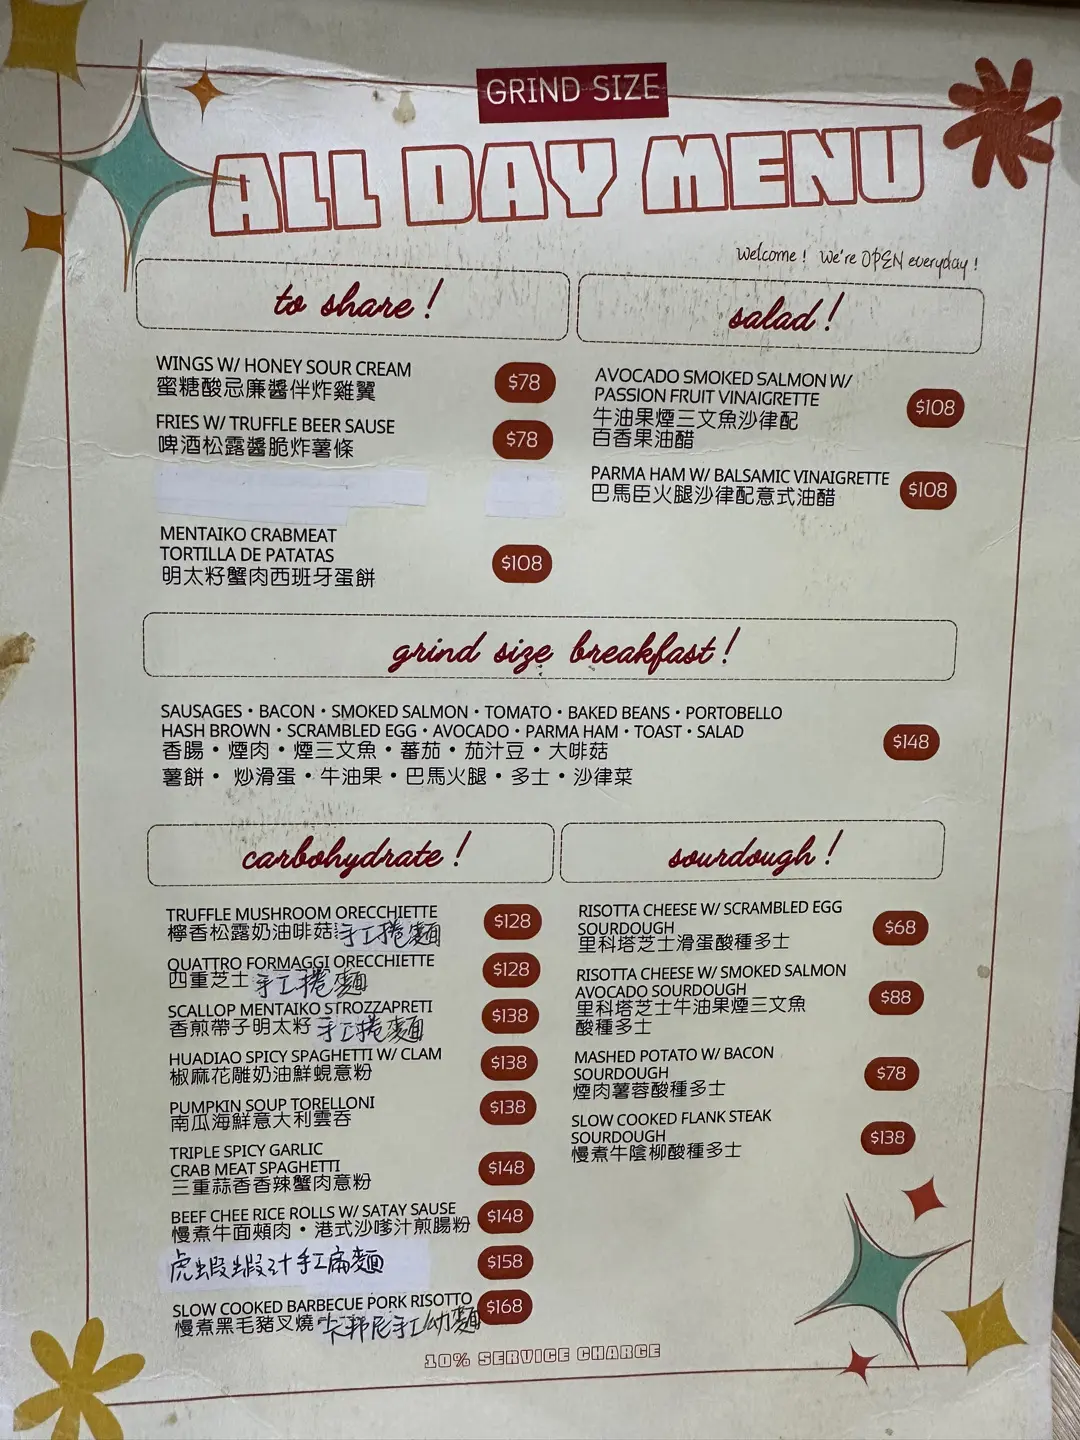 GRIND SIZE
ALL DAY MENU
Welcome! We're OPEN everyday!
to share!
WINGS W/ HONEY SOUR CREAM
蜜糖酸忌廉醬伴炸雞翼
$78
FRIES W/ TRUFFLE BEER SAUSE
啤酒松露醬脆炸薯條
$78
MENTAIKO CRABMEAT
TORTILLA DE PATATAS
明太籽蟹肉西班牙蛋餅
$108
salad!
AVOCADO SMOKED SALMON W/
PASSION FRUIT VINAIGRETTE
牛油果煙三文魚沙律配
百香果油醋
$108
PARMA HAM W/ BALSAMIC VINAIGRETTE
巴馬臣火腿沙律配意式油醋
$108
grind size breakfast!
SAUSAGES・BACON・SMOKED SALMON・TOMATO・BAKED BEANS・PORTOBELLO
HASH BROWN・SCRAMBLED EGG・AVOCADO・PARMA HAM・TOAST・SALAD
香腸・煙肉・煙三文魚・蕃茄・茄汁豆・大啡菇
薯餅・炒滑蛋・牛油果・巴馬火腿・多士・沙律菜
$148
carbohydrate!
TRUFFLE MUSHROOM ORECCHIETTE
檸香松露奶油啡菇手工捲麵
$128
QUATTRO FORMAGGI ORECCHIETTE
四重芝士手工捲麵
$128
SCALLOP MENTAIKO STROZZAPRETI
香煎帶子明太籽手工捲麵
$138
HUADIAO SPICY SPAGHETTI W/ CLAM
椒麻花雕奶油鮮蜆意粉
$138
PUMPKIN SOUP TORELLONI
南瓜海鮮意大利雲吞
$138
TRIPLE SPICY GARLIC
CRAB MEAT SPAGHETTI
三重蒜香香辣蟹肉意粉
$148
BEEF CHEE RICE ROLLS W/ SATAY SAUSE
慢煮牛面頰肉・港式沙嗲汁煎腸粉
$148
虎蝦蝦汁手工扁麵
$158
SLOW COOKED BARBECUE PORK RISOTTO
慢煮黑毛豬叉燒卡邦尼手工幼麵
$168
sourdough!
RISOTTA CHEESE W/ SCRAMBLED EGG
SOURDOUGH
里科塔芝士滑蛋酸種多士
$68
RISOTTA CHEESE W/ SMOKED SALMON
AVOCADO SOURDOUGH
里科塔芝士牛油果煙三文魚
酸種多士
$88
MASHED POTATO W/ BACON
SOURDOUGH
煙肉薯蓉酸種多士
$78
SLOW COOKED FLANK STEAK
SOURDOUGH
慢煮牛陰柳酸種多士
$138
10% SERVICE CHARGE